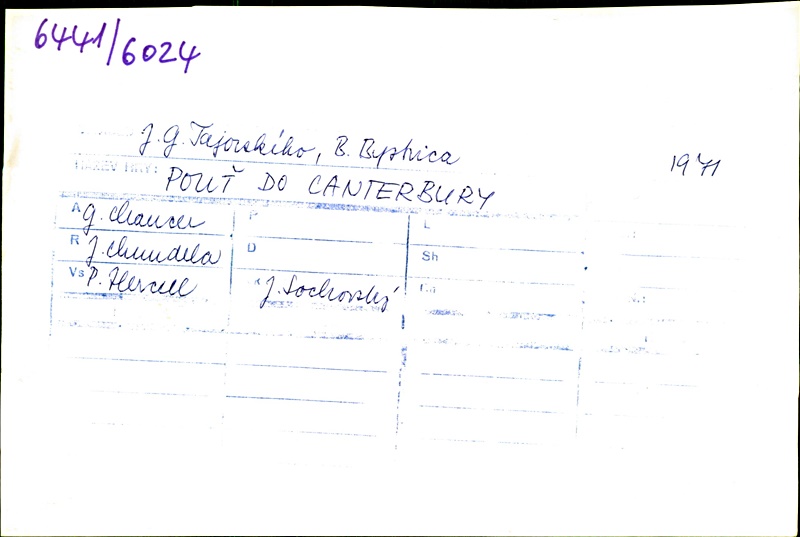 6441/6024
J. G. Tajovského, B. Bystrica 1971
NÁZEV HRY: POUŤ DO CANTERBURY
A G. Chaucer P L
R J. Chundela D Sh
Vs P. Hercel K J. Sochovský